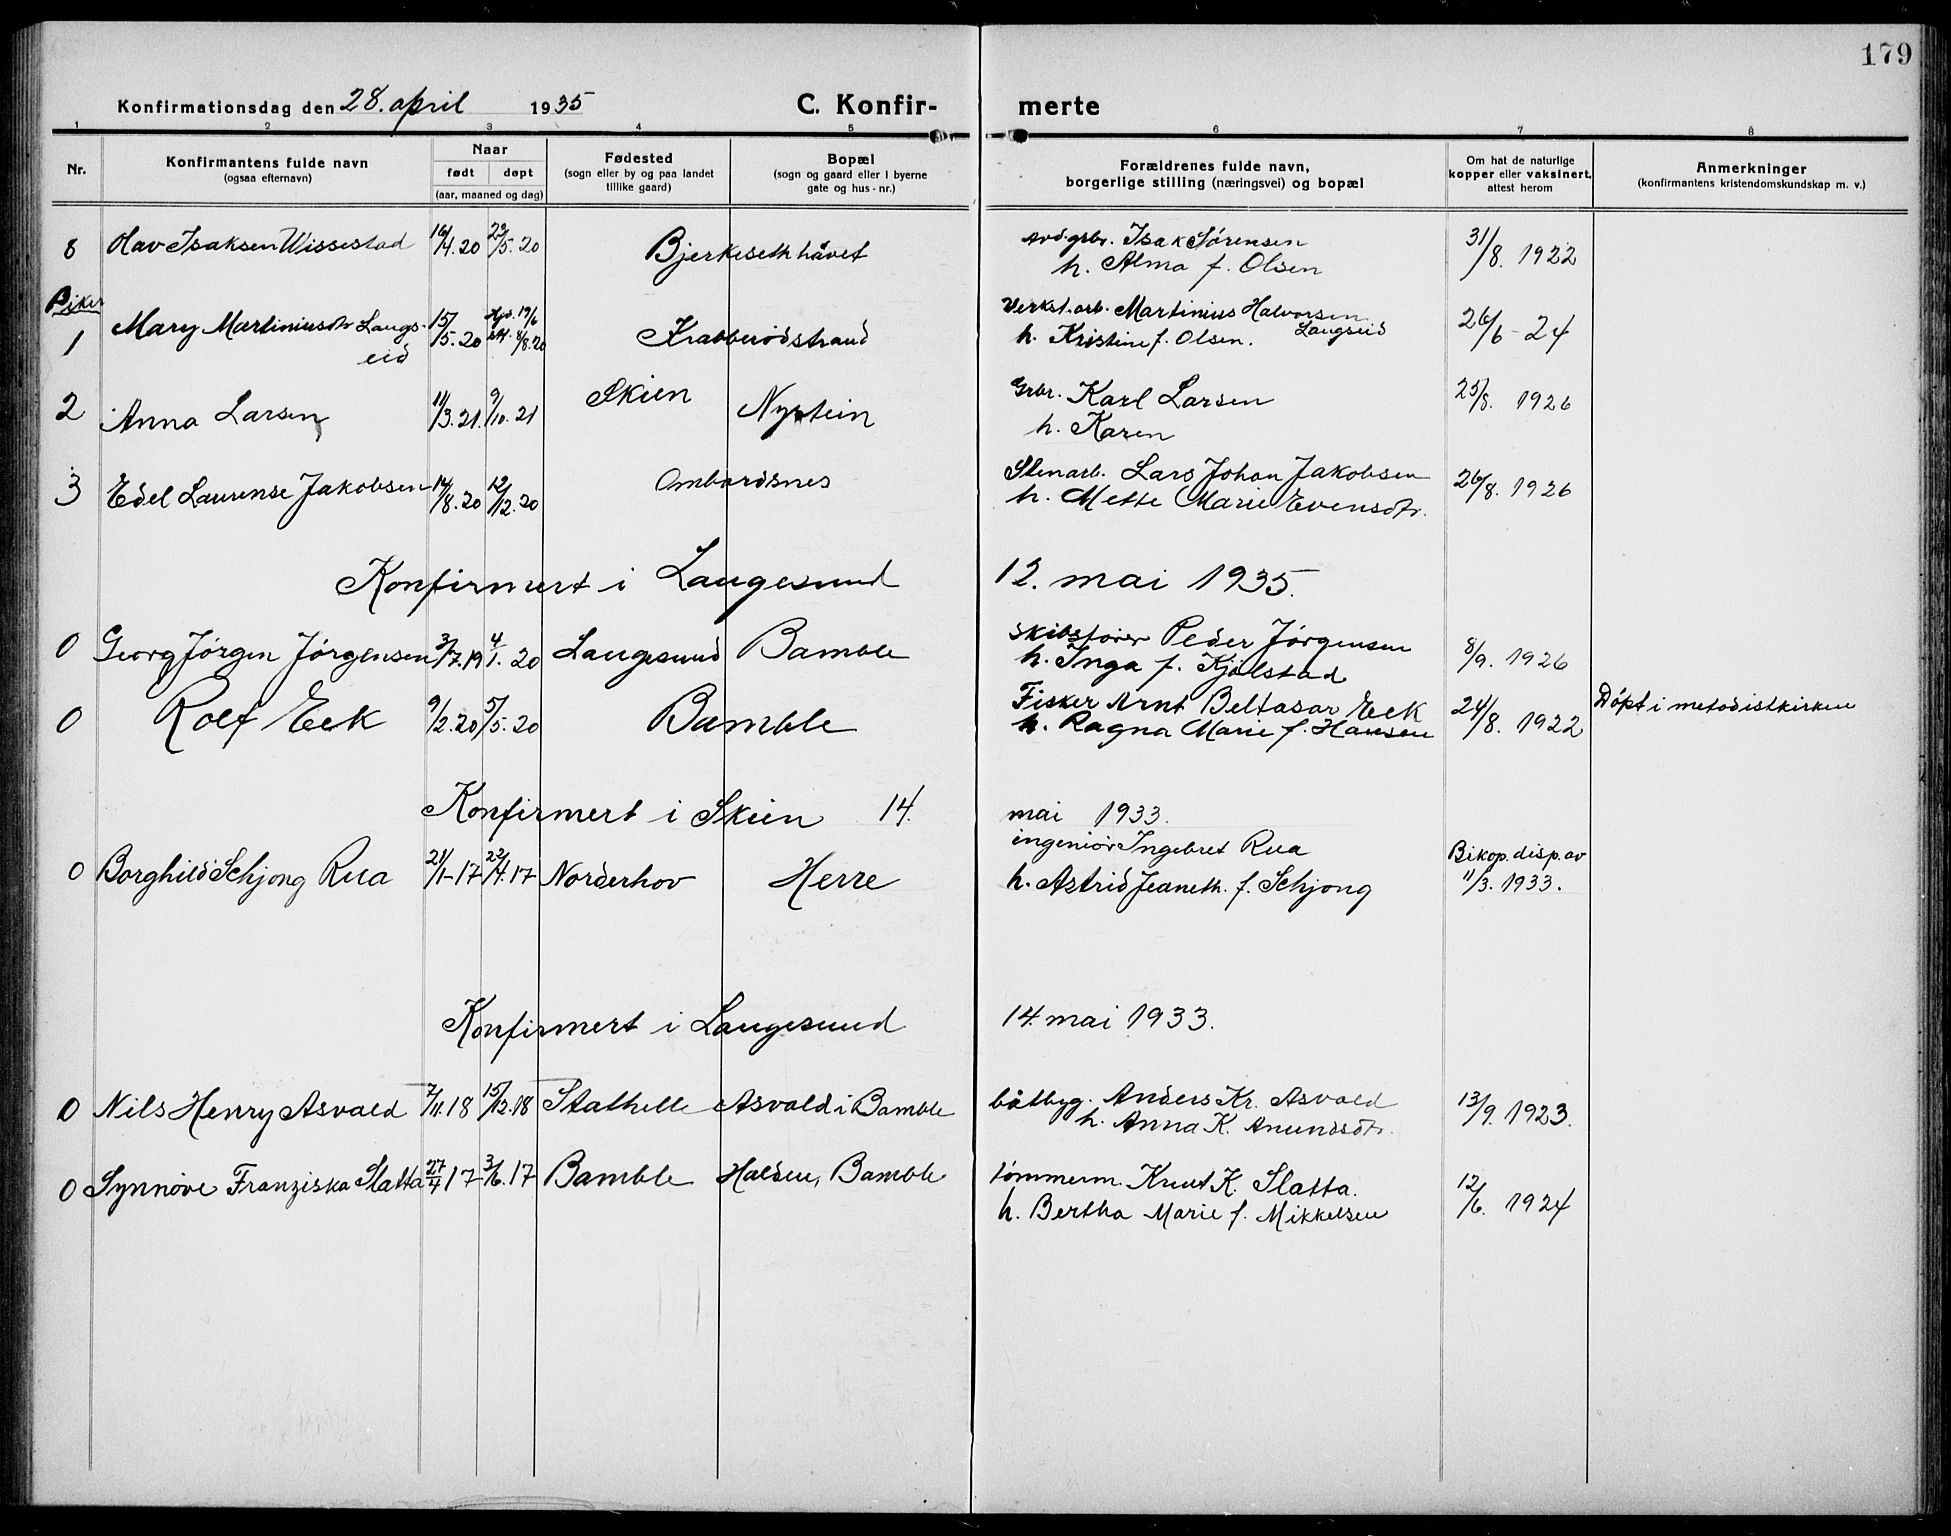 179
Konfirmationsdag den 28. april 1935 C. Konfir- merte
1 2 3 4 5 6 7 8
Nr. Konfirmantens fulde navn (ogsaa efternavn) Naar født døpt (aar, maaned og dag) Fødested (sogn eller by og paa landet tillike gaard) Bopæl (sogn og gaard eller i byerne gate og hus-nr.) Forældrenes fulde navn, borgerlige stilling (næringsvei) og bopæl Om hat de naturlige kopper eller vaksinert, attest herom Anmerkninger (konfirmantens kristendomskundskap m. v.)
8 Olav Isaksen Wissestad 16/4.20 23/5.20 Bjerkeseth håvet grbr. Isak Sörensen 31/8. 1922
h. Alma f. Olsen
Piker
1 Mary Martiniusdtr Langs- 15/5.20 hjd. 19/6 Krabberödstrand Verkst.arb. Martinius Halvorsen 26/6-24
eid 4/8.20 h. Kristine f. Olsen. Langseid
2 Anna Larsen 11/3.21. 9/10.21 Skien Nystein Grbr. Karl Larsen 25/8. 1926
h. Karen
3 Edel Laurense Jakobsen 14/8.20 12/12.20 Ombordsnes Stenarb. Lars Johan Jakobsen 26/8. 1926
h. Mette Marie Evensdtr.
Konfirmert i Langesund 12. mai 1935.
0 Georg Jörgen Jörgensen 3/7.19 4/1.20 Langesund Bamble skibsförer Peder Jörgensen 8/9. 1926
h. Inga f. Kjölstad
0 Rolf Eek 9/2.20 5/5.20 Bamble Fisker Arnt Beltasar Eek 24/8. 1922 Döpt i metodistkirken
h. Ragna Marie f. Hansen
Konfirmert i Skien 14. mai 1933.
0 Borghild Schjong Rua 21/1-17 22/4.17 Norderhov Herre ingeniör Ingebret Rua Bikop. disp. av
h. Astrid Jeaneth. f. Schjong 11/3. 1933.
Konfirmert i Langesund 14. mai 1933.
0 Nils Henry Asvald 7/11.18 15/12.18 Stathelle Asvald i Bamble båtbyg. Anders Kr. Asvald 13/9. 1923.
h. Anna K. Anundsdtr.
0 Synnöve Franziska Slatta 27/4 17 3/6.17 Bamble Halden, Bamble tömmerm. Knut K. Slatta. 12/6. 1924
h. Bertha Marie f. Mikkelsen